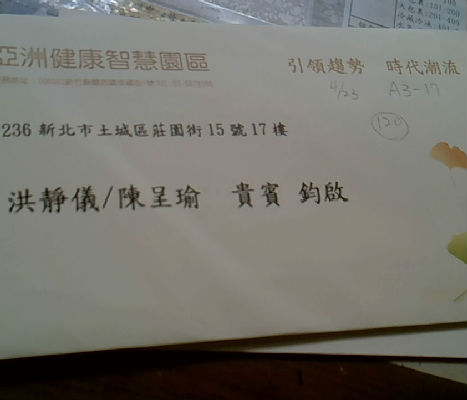 亞洲健康智慧園區
引領趨勢 時代潮流
4/23 A3-17
120
236 新北市土城區莊園街15號17樓
洪靜儀/陳呈瑜 貴賓 鈞啟